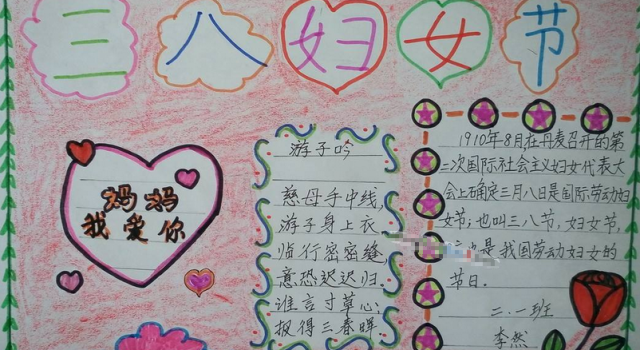 三八妇女节
妈妈
我爱你
游子吟
慈母手中线,
游子身上衣
临行密密缝,
意恐迟迟归.
谁言寸草心:
报得三春晖
1910年8月在丹麦召开的第
二次国际社会主义妇女代表大
会上确定三月八日是国际劳动妇
女节;也叫三八节,妇女节,
也是我国劳动妇女的
节日.
二.一班
李然